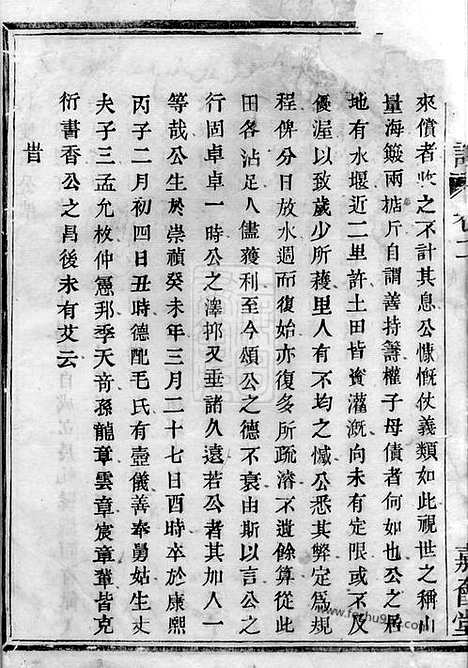 來償者收之不計其息公慷慨仗義類如此視世之稱山
量海鍛兩掂斤自謂善持籌權子母債者何如也公之居
地有水堰近二里許土田皆資灌溉向未有定限或不及
優渥以致歲少所穫里人有不均之憾公悉其弊定為規
程俾分日放水週而復始亦復多所疏濬不遺餘算從此
田各沾足人儘獲利至今頌公之德不衰由斯以言公之
行固卓卓一時公之澤抑又垂諸久遠若公者其可以一
等哉公生於崇禎癸未年三月二十七日酉時卒於康熙
丙子二月初四日丑時德配毛氏有壺儀善奉舅姑生丈
夫子三孟允枚仲憲邦季天音孫龍章雲章宸章等皆克
衍書香公之昌後未有艾云
昔
譜 卷二
嘉會堂